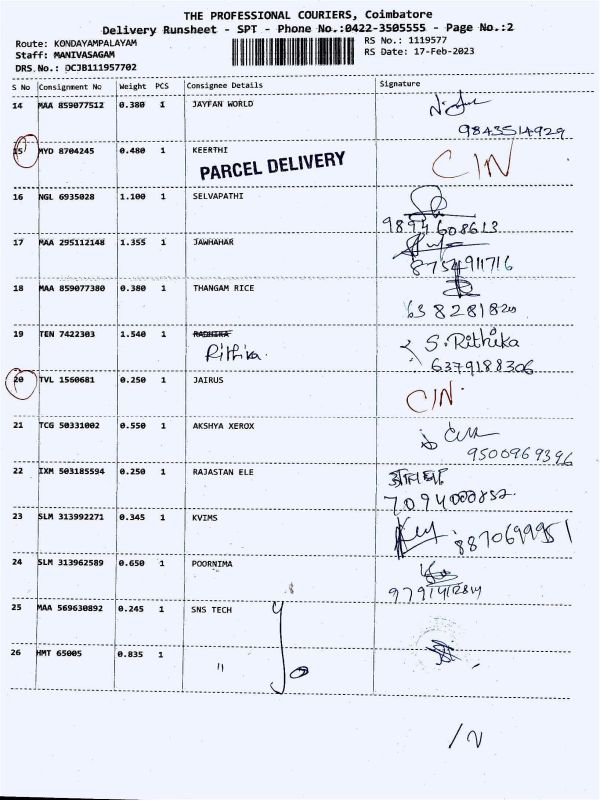 THE PROFESSIONAL COURIERS, Coimbatore
Delivery Runsheet - SPT - Phone No.:0422-3505555 - Page No.:2
Route: KONDAYAMPALAYAM RS No.: 1119577
Staff: MANIVASAGAM RS Date: 17-Feb-2023
DRS.No.: DCJB111957702
S No Consignment No Weight PCS Consignee Details Signature
14 MAA 859077512 0.380 1 JAYFAN WORLD
9843514929
15 MYD 8704245 0.480 1 KEERTHI CIN
PARCEL DELIVERY
16 NGL 6935028 1.100 1 SELVAPATHI
9894608613
17 MAA 295112148 1.355 1 JAWHAHAR
8754911716
18 MAA 859077380 0.380 1 THANGAM RICE
19 TEN 7422303 1.540 1 RADHIKA S. Rithika
Rithika. 6379188306
20 TVL 1560681 0.250 1 JAIRUS CIN.
21 TCG 50331002 0.550 1 AKSHYA XEROX
9500969396
22 IXM 503185594 0.250 1 RAJASTAN ELE
7094000852
23 SLM 313992271 0.345 1 KVIMS
8870699951
24 SLM 313962589 0.650 1 POORNIMA
25 MAA 569630892 0.245 1 SNS TECH
26 HMT 65005 0.835 1 "